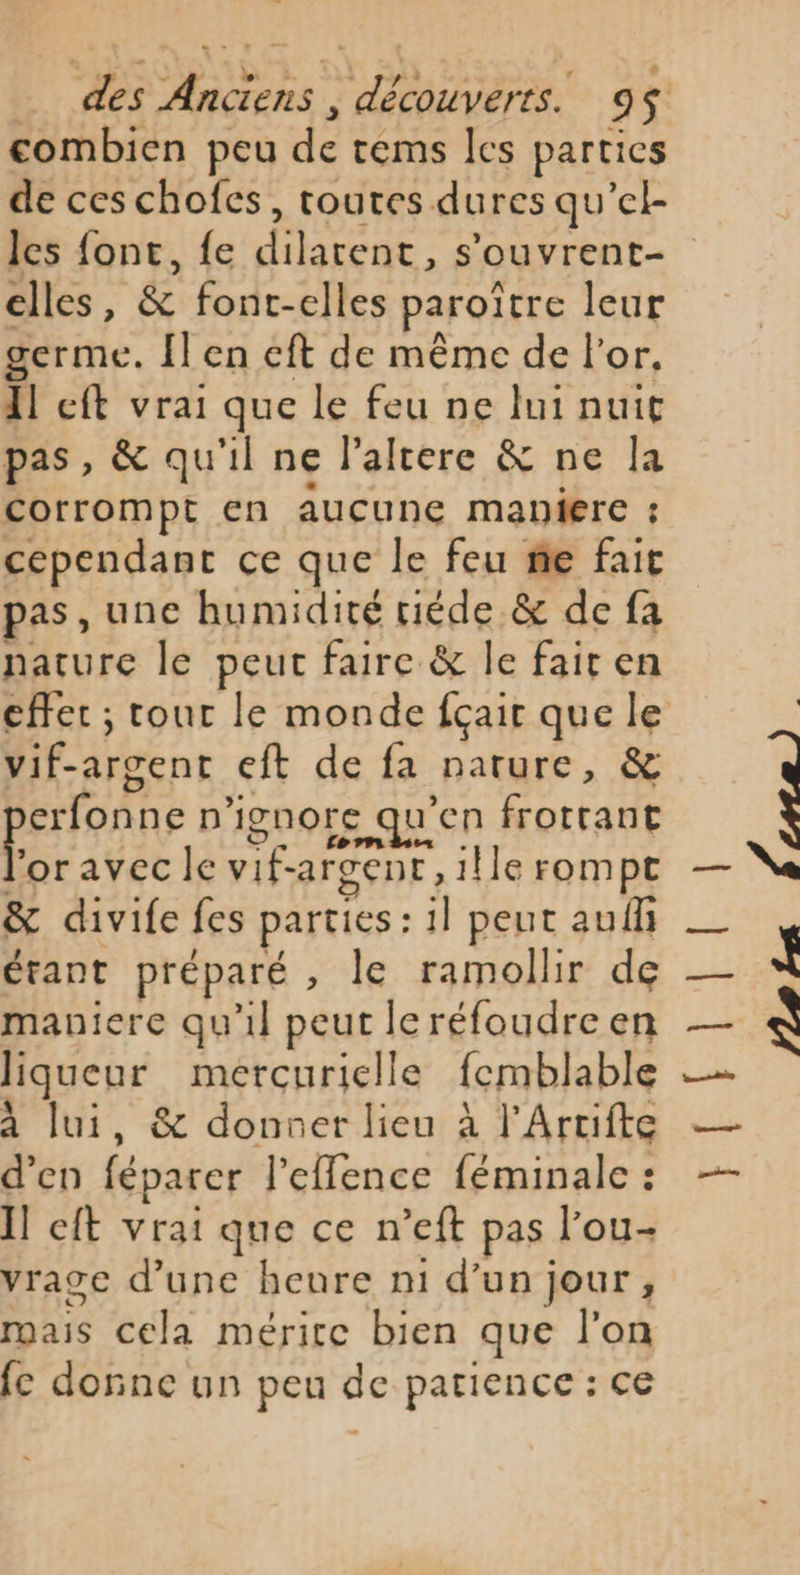 des Anciens , découverts. 95
combien peu de tems les parties
de ces choſes, toutes dures qu'el-
les ſont, ſe dilatent, s'ouvrent-
elles, & font-elles paroître leur
germe. Il en eſt de même de l'or.
Il eſt vrai que le feu ne lui nuit
pas, & qu'il ne l'altere & ne la
corrompt en aucune maniere :
cependant ce que le feu ne fait
pas, une humidité tiéde & de ſa
nature le peut faire & le fait en
effet ; tout le monde ſçait que le
vif-argent eſt de ſa nature, &
perſonne n'ignore qu'en frottant
l'or avec le vif-argent, il le rompt
& diviſe ſes parties : il peut auſſi
étant préparé , le ramollir de
maniere qu'il peut le réſoudre en
liqueur mercurielle ſemblable
à lui, & donner lieu à l'Artiſte
d'en ſéparer l'eſſence ſéminale :
Il eſt vrai que ce n'eſt pas l'ou-
vrage d'une heure ni d'un jour,
mais cela mérite bien que l'on
ſe donne un peu de patience : ce